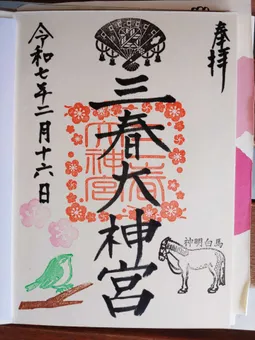 奉拝
三春大神宮
三春大神宮
神明白馬
令和七年二月十六日